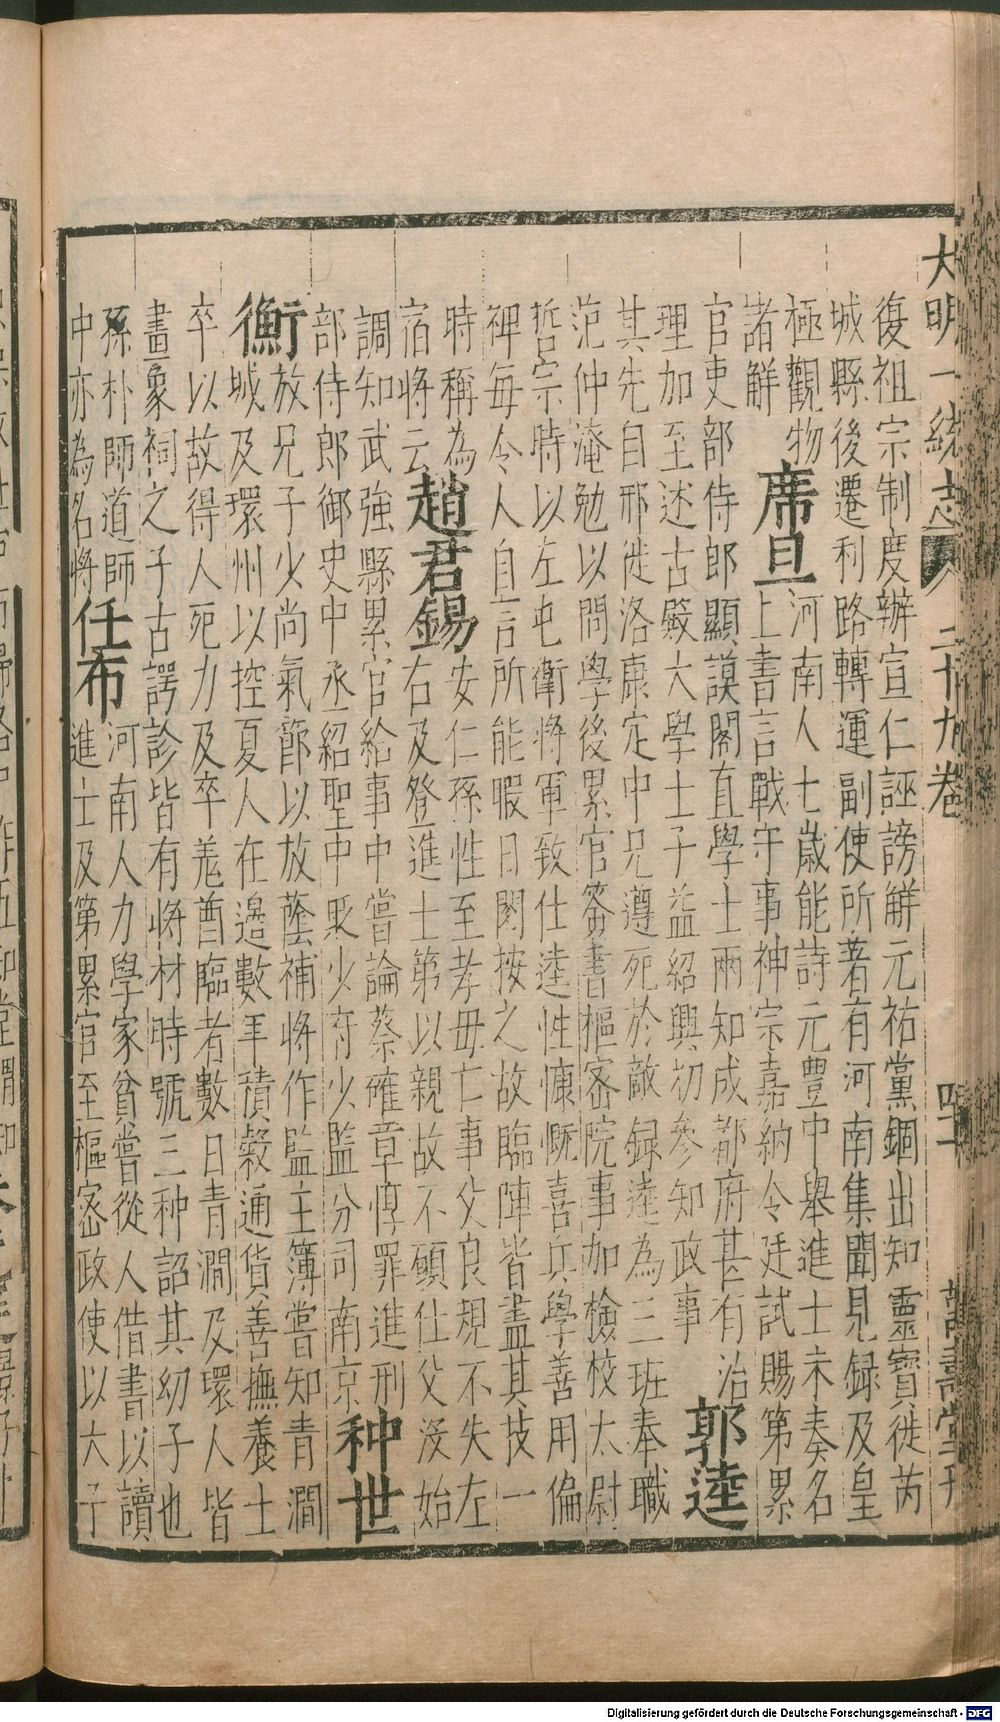 大明一統志 二十九卷 四十 萬壽堂刊
復祖宗制度辦宣仁誣謗解元祐黨錮出知靈寶徙芮
城縣後遷利路轉運副使所著有河南集聞見録及皇
極觀物
諸解
席旦
河南人七歲能詩元豐中舉進士未奏名
上書言戰守事神宗嘉納令廷試賜第累
官吏部侍郎顯謨閣直學士兩知成都府甚有治
理加至述古殿大學士子益紹興初參知政事
郭逵
其先自邢徙洛康定中兄遵死於敵録逵為三班奉職
范仲淹勉以問學後累官簽書樞密院事加檢校太尉
哲宗時以左屯衛將軍致仕逵性慷慨喜兵學善用偏
裨每令人自言所能暇日閱按之故臨陣皆盡其技一
時稱為
宿將云
趙君錫
安仁孫性至孝母亡事父良規不失左
右及登進士第以親故不願仕父沒始
調知武強縣累官給事中嘗論蔡確章惇罪進刑
部侍郎御史中丞紹聖中貶少府少監分司南京
种世
衡
放兄子少尚氣節以放蔭補將作監主簿嘗知青澗
城及環州以控夏人在邉數年積穀通貨善撫養士
卒以故得人死力及卒羗酋臨者數日青澗及環人皆
畫象祠之子古諤診皆有將材時號三种詔其幼子也
孫朴師道師
中亦為名將
任布
河南人力學家貧嘗從人借書以讀
進士及第累官至樞密政使以太子
Digitalisierung gefördert durch die Deutsche Forschungsgemeinschaft - DFG